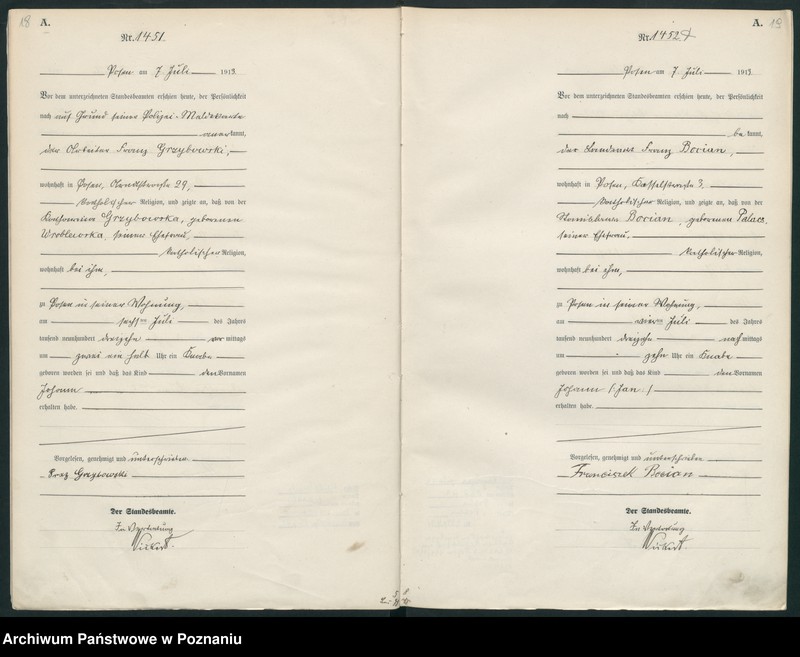 18
A.
Nr. 1451
Posen am 7. Juli 1913
Vor dem unterzeichneten Standesbeamten erschien heute, der Persönlichkeit
nach auf Grund seiner Polizei-Meldekarte
anerkannt,
der Arbeiter Franz Grzybowski,
wohnhaft in Posen, 29,
katholischer Religion, und zeigte an, daß von der
Grzybowska, geborenen
Wroblewska, seiner Ehefrau,
katholischer Religion,
wohnhaft bei ihm,
zu Posen in seiner Wohnung,
am sechsten Juli des Jahres
tausend neunhundert dreizehn vormittags
um zwei ein halb Uhr ein Knabe
geboren worden sei und daß das Kind den Vornamen
Johann
erhalten habe.
Vorgelesen, genehmigt und unterschrieben
Franz Grzybowski
Der Standesbeamte.
In Vertretung
A. 19
Nr. 1452
Posen am 7. Juli 1913
Vor dem unterzeichneten Standesbeamten erschien heute, der Persönlichkeit
nach
bekannt,
der Franz Bocian,
wohnhaft in Posen, 3,
katholischer Religion, und zeigte an, daß von der
Stanislawa Bocian, geborenen Palacz,
seiner Ehefrau,
katholischer Religion,
wohnhaft bei ihm,
zu Posen in seiner Wohnung,
am vierten Juli des Jahres
tausend neunhundert dreizehn nachmittags
um zehn Uhr ein Knabe
geboren worden sei und daß das Kind den Vornamen
Johann (Jan)
erhalten habe.
Vorgelesen, genehmigt und unterschrieben
Franciszek Bocian
Der Standesbeamte.
In Vertretung
Archiwum Państwowe w Poznaniu